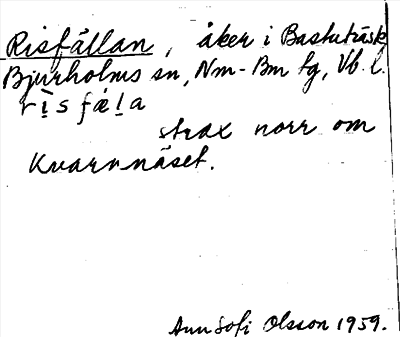 Risfällan, åker i Bastuträsk
Bjurholms sn, Nm-Bm tg, Vb. l.
rìsfæ̀ḷa
strax norr om
Kvarnnäset.
Ann Sofi Olsson 1959.